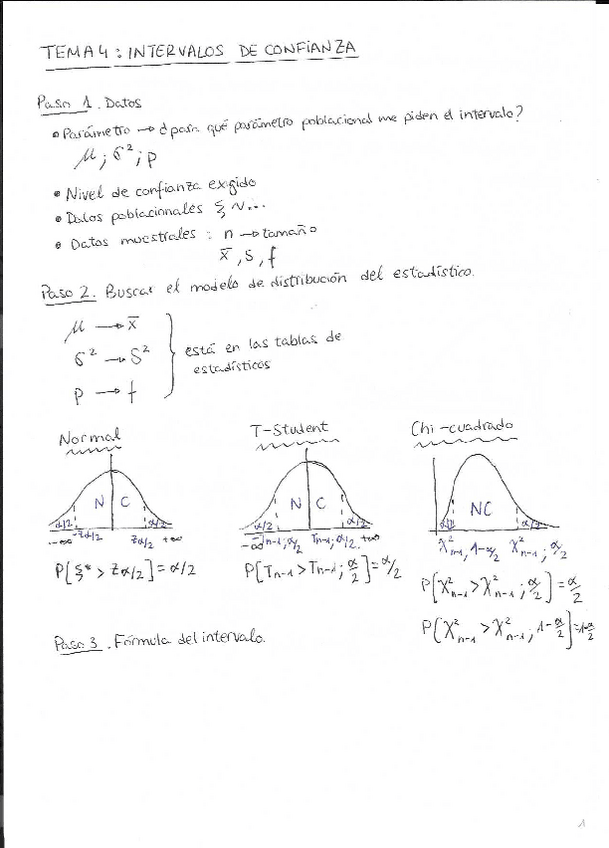 TEMA 4: INTERVALOS DE CONFIANZA
Paso 1. Datos
• Parámetro → ¿para qué parámetro poblacional me piden el intervalo?
μ; σ²; p
• Nivel de confianza exigido
• Datos poblacionales ξ N...
• Datos muestrales: n → tamaño
x̄, S, f
Paso 2. Buscar el modelo de distribución del estadístico.
μ → x̄
σ² → S²
p → f
está en las tablas de
estadísticos
Normal
N C
α/2 α/2
-∞ -zα/2 zα/2 +∞
P[ξ* > zα/2] = α/2
T-Student
N C
α/2 α/2
-∞ -Tn-1; α/2 Tn-1; α/2 +∞
P[Tn-1 > Tn-1; α/2] = α/2
Chi-cuadrado
NC
α/2 α/2
X²n-1, 1-α/2 X²n-1; α/2
P[X²n-1 > X²n-1; α/2] = α/2
P[X²n-1 > X²n-1; 1-α/2] = 1-α/2
Paso 3. Fórmula del intervalo.
1